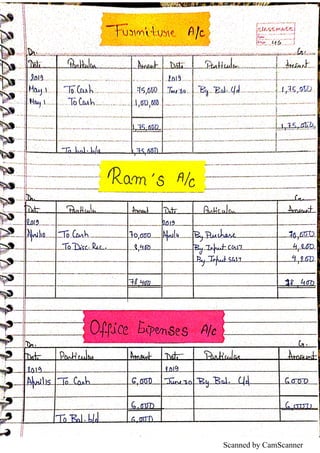 Furniture A/c
classmate
Date
Page 45
Dr. Cr.
Date Particulars Amount Date Particulars Amount
2019 2019
May 1 To Cash 75,000 June 30 By Bal. C/d 1,75,000
May 1 To Cash 1,00,000
1,75,000 1,75,000
To bal. b/d 1,75,000
Ram's A/c
Dr. Cr.
Date Particulars Amount Date Particulars Amount
2019 2019
April 10 To Cash 70,000 April 4 By Purchase 70,000
To Disc. Rec. 8,400 By Input CGST 4,200
By Input SGST 4,200
78,400 78,400
Office Expenses A/c
Dr. Cr.
Date Particulars Amount Date Particulars Amount
2019 2019
April 15 To Cash 6,000 June 30 By Bal. C/d 6000
6,000 6,000
To Bal. b/d 6,000
Scanned by CamScanner